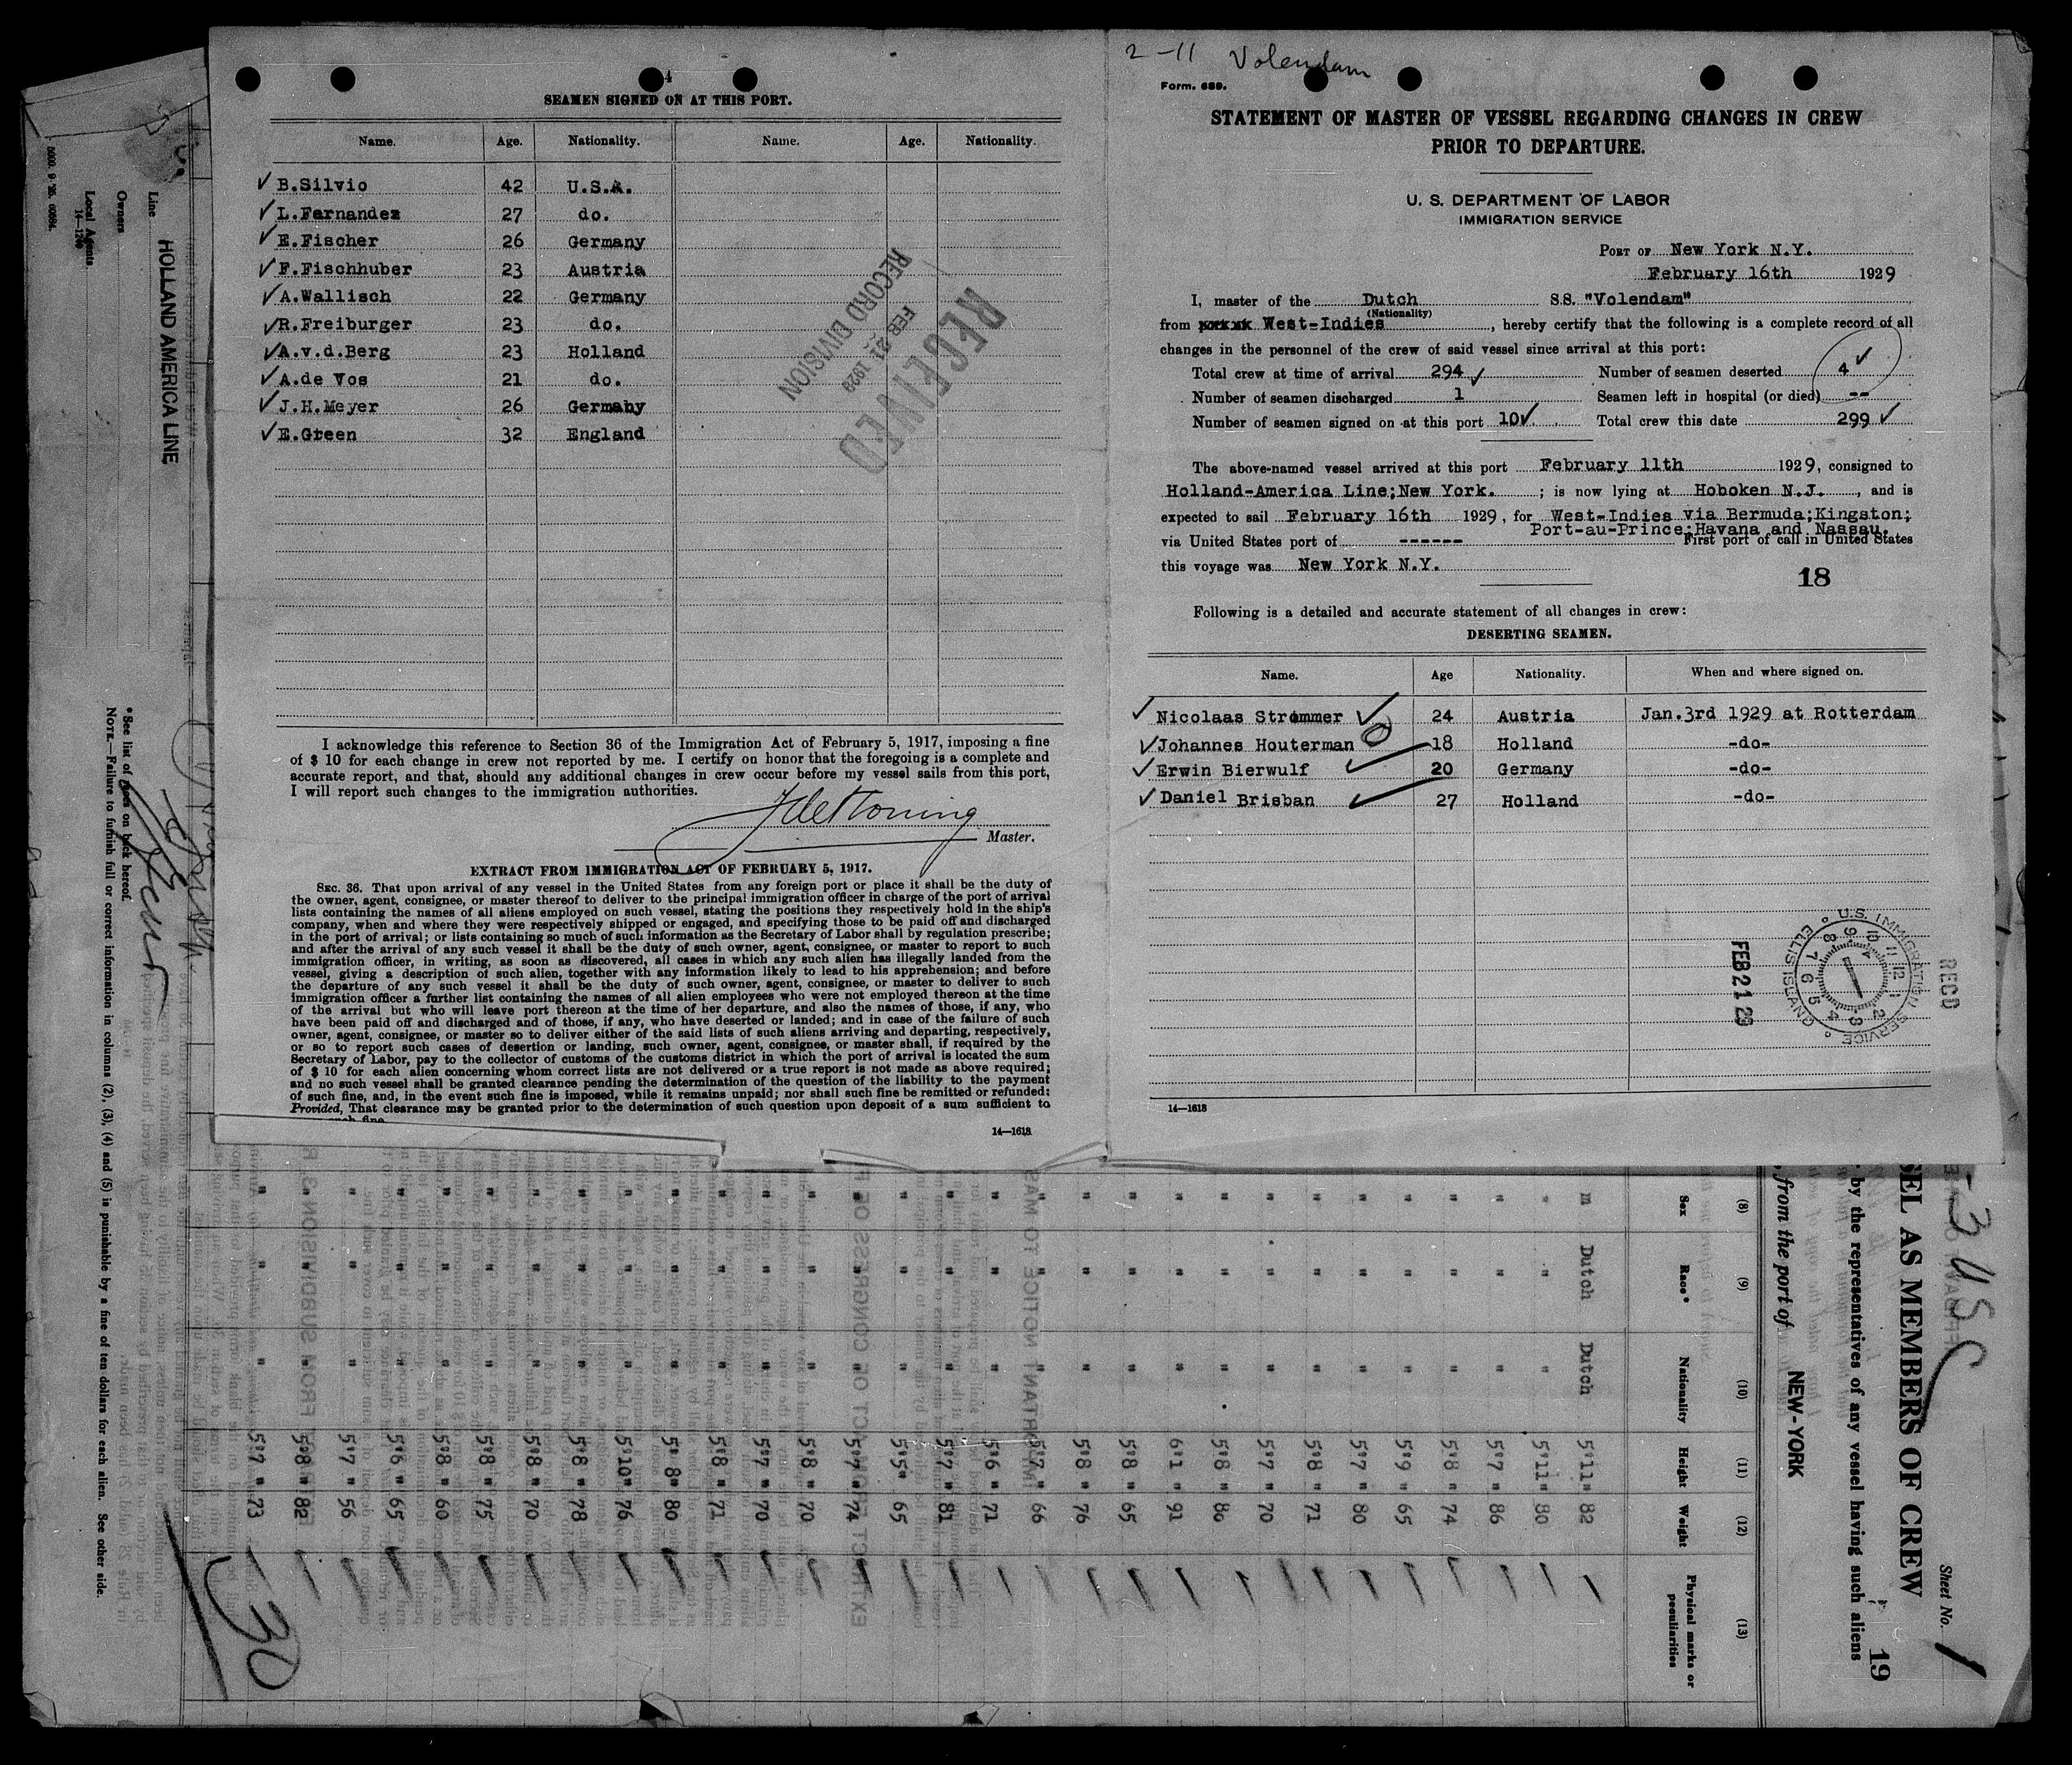 4
SEAMEN SIGNED ON AT THIS PORT.
Name. Age. Nationality. Name. Age. Nationality.
B.Silvio 42 U.S.A.
L.Fernandez 27 do.
E.Fischer 26 Germany
F.Fischhuber 23 Austria
A.Wallisch 22 Germany
R.Freiburger 23 do.
A.v.d.Berg 23 Holland
A.de Vos 21 do.
J.H.Meyer 26 Germany
E.Green 32 England
RECEIVED
FEB 21 1929
RECORD DIVISION
I acknowledge this reference to Section 36 of the Immigration Act of February 5, 1917, imposing a fine
of $ 10 for each change in crew not reported by me. I certify on honor that the foregoing is a complete and
accurate report, and that, should any additional changes in crew occur before my vessel sails from this port,
I will report such changes to the immigration authorities.
Master.
EXTRACT FROM IMMIGRATION ACT OF FEBRUARY 5, 1917.
SEC. 36. That upon arrival of any vessel in the United States from any foreign port or place it shall be the duty of
the owner, agent, consignee, or master thereof to deliver to the principal immigration officer in charge of the port of arrival
lists containing the names of all aliens employed on such vessel, stating the positions they respectively hold in the ship's
company, when and where they were respectively shipped or engaged, and specifying those to be paid off and discharged
in the port of arrival; or lists containing so much of such information as the Secretary of Labor shall by regulation prescribe;
and after the arrival of any such vessel it shall be the duty of such owner, agent, consignee, or master to report to such
immigration officer, in writing, as soon as discovered, all cases in which any such alien has illegally landed from the
vessel, giving a description of such alien, together with any information likely to lead to his apprehension; and before
the departure of any such vessel it shall be the duty of such owner, agent, consignee, or master to deliver to such
immigration officer a further list containing the names of all alien employees who were not employed thereon at the time
of the arrival but who will leave port thereon at the time of her departure, and also the names of those, if any, who
have been paid off and discharged and of those, if any, who have deserted or landed; and in case of the failure of such
owner, agent, consignee, or master so to deliver either of the said lists of such aliens arriving and departing, respectively,
or so to report such cases of desertion or landing, such owner, agent, consignee, or master shall, if required by the
Secretary of Labor, pay to the collector of customs of the customs district in which the port of arrival is located the sum
of $ 10 for each alien concerning whom correct lists are not delivered or a true report is not made as above required;
and no such vessel shall be granted clearance pending the determination of the question of the liability to the payment
of such fine, and, in the event such fine is imposed, while it remains unpaid; nor shall such fine be remitted or refunded:
Provided, That clearance may be granted prior to the determination of such question upon deposit of a sum sufficient to
such fine
14—1618
2-11 Volendam
Form. 689.
STATEMENT OF MASTER OF VESSEL REGARDING CHANGES IN CREW
PRIOR TO DEPARTURE.
U. S. DEPARTMENT OF LABOR
IMMIGRATION SERVICE
PORT OF New York N.Y.
February 16th 1929
I, master of the Dutch S.S. "Volendam"
(Nationality)
from West-Indies, hereby certify that the following is a complete record of all
changes in the personnel of the crew of said vessel since arrival at this port:
Total crew at time of arrival 294 Number of seamen deserted 4
Number of seamen discharged 1 Seamen left in hospital (or died) --
Number of seamen signed on at this port 10 Total crew this date 299
The above-named vessel arrived at this port February 11th 1929, consigned to
Holland-America Line;New York. ; is now lying at Hoboken N.J., and is
expected to sail February 16th 1929, for West-Indies via Bermuda;Kingston;
Port-au-Prince;Havana and Nassau.
via United States port of ------ First port of call in United States
this voyage was New York N.Y.
18
Following is a detailed and accurate statement of all changes in crew:
DESERTING SEAMEN.
Name. Age Nationality. When and where signed on.
Nicolaas Strommer 24 Austria Jan.3rd 1929 at Rotterdam
Johannes Houterman 18 Holland -do-
Erwin Bierwulf 20 Germany -do-
Daniel Brisban 27 Holland -do-
U.S. IMMIGRATION SERVICE
ELLIS ISLAND
FEB 21 29
RECD
14—1618
5000 9 '26. 60984.
Local Agents
14—1240
Owners
Line HOLLAND AMERICA LINE
*See list of races on back hereof.
NOTE.—Failure to furnish full or correct information in columns (2), (3), (4) and (5) is punishable by a fine of ten dollars for each alien. See other side.
Sheet No. 1
SEL AS MEMBERS OF CREW
by the representatives of any vessel having such aliens
19
, from the port of NEW-YORK
(8) (9) (10) (11) (12) (13)
Sex Race* Nationality Height Weight Physical marks or peculiarities
m Dutch Dutch 5'11" 82
" " " 5'11" 80
" " " 5'7 " 86
" " " 5'8 " 74
" " " 5'9 " 65
" " " 5'7 " 80
" " " 5'8 " 71
" " " 5'7 " 70
" " " 5'8 " 80
" " " 6'1 " 91
" " " 5'8 " 65
" " " 5'8 " 76
" " " 5'7 " 66
" " " 5'6 " 71
" " " 5'7 " 81
" " " 5'5" 65
" " " 5'7 " 74
" " " 5'8 " 70
" " " 5'7 " 70
" " " 5'8 " 71
" " " 5' 8" 80
" " " 5'10" 76
" " " 5'8 " 78
" " " 5'8 " 70
" " " 5'8 " 75
" " " 5'8 " 60
" " " 5'6 " 65
" " " 5'7 " 56
" " " 5'8 " 82
" " " 5'7 " 73
30